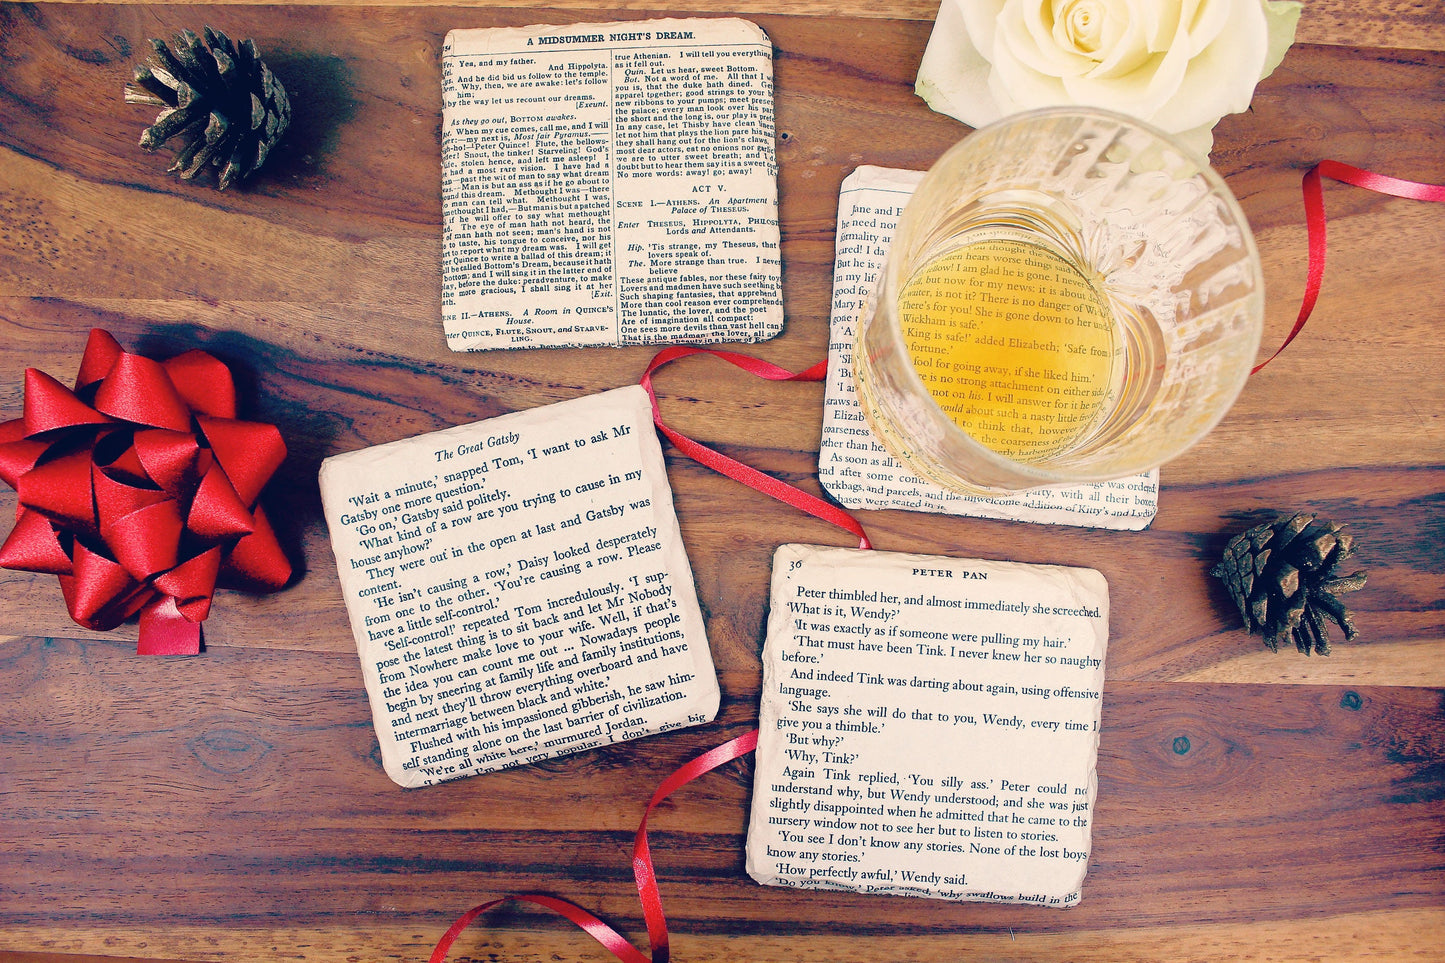 A MIDSUMMER NIGHT'S DREAM.
Yea, and my father.
And Hippolyta.
And he did bid us follow to the temple.
Why, then, we are awake: let's follow
him;
by the way let us recount our dreams.
[Exeunt.
As they go out, BOTTOM awakes.
When my cue comes, call me, and I will
my next is, Most fair Pyramus.—
Peter Quince! Flute, the bellows-
Snout, the tinker! Starveling! God's
stolen hence, and left me asleep! I
had a most rare vision. I have had a
past the wit of man to say what dream
Man is but an ass if he go about to
this dream. Methought I was—there
man can tell what. Methought I was,
methought I had,—But man is but a patched
if he will offer to say what methought
The eye of man hath not heard, the
of man hath not seen; man's hand is not
to taste, his tongue to conceive, nor his
to report what my dream was. I will get
Quince to write a ballad of this dream; it
be called Bottom's Dream, because it hath
bottom; and I will sing it in the latter end of
before the duke: peradventure, to make
the more gracious, I shall sing it at her
[Exit.
II.—ATHENS. A Room in QUINCE'S
House.
QUINCE, FLUTE, SNOUT, and STARVE-
LING.
true Athenian. I will tell you everything
as it fell out.
Quin. Let us hear, sweet Bottom.
Bot. Not a word of me. All that I
you is, that the duke hath dined.
apparel together; good strings to your
new ribbons to your pumps; meet
the palace; every man look over his
the short and the long is, our play is
In any case, let Thisby have clean
let not him that plays the lion pare his
they shall hang out for the lion's claws,
most dear actors, eat no onions nor
we are to utter sweet breath; and I
doubt but to hear them say it is a sweet
No more words: away! go; away!
ACT V.
SCENE I.—ATHENS. An Apartment
Palace of THESEUS.
Enter THESEUS, HIPPOLYTA,
Lords and Attendants.
Hip. 'Tis strange, my Theseus, that
lovers speak of.
The. More strange than true. I never
believe
These antique fables, nor these fairy
Lovers and madmen have such seething
Such shaping fantasies, that apprehend
More than cool reason ever comprehends
The lunatic, the lover, and the poet
Are of imagination all compact:
One sees more devils than vast hell can
That is the madman: the lover, all as
Jane and
he need not
formality an
But he is a
in my life
good for
Mary
hears worse things said
fellow! I am glad he is gone. I never
but now for my news: it is about
waiter, is not it? There is no danger of
There's for you! She is gone down to her
Wickham is safe.'
King is safe!' added Elizabeth; 'Safe from
fortune.'
fool for going away, if she liked him.'
is no strong attachment on either side
not on his. I will answer for it he
could about such a nasty little
to think that, however
the coarseness of
Elizab
coarseness
other than he
As soon as all
and after some
workbags, and parcels, and the unwelcome addition of Kitty's and Lydia
party, with all their boxes,
were seated in it.
The Great Gatsby
'Wait a minute,' snapped Tom, 'I want to ask Mr
Gatsby one more question.'
'Go on,' Gatsby said politely.
'What kind of a row are you trying to cause in my
house anyhow?'
They were out in the open at last and Gatsby was
content.
'He isn't causing a row,' Daisy looked desperately
from one to the other. 'You're causing a row. Please
have a little self-control.'
'Self-control!' repeated Tom incredulously. 'I sup-
pose the latest thing is to sit back and let Mr Nobody
from Nowhere make love to your wife. Well, if that's
the idea you can count me out ... Nowadays people
begin by sneering at family life and family institutions,
and next they'll throw everything overboard and have
intermarriage between black and white.'
Flushed with his impassioned gibberish, he saw him-
self standing alone on the last barrier of civilization.
'We're all white here,' murmured Jordan.
'I know I'm not very popular. I don't give big
36
PETER PAN
Peter thimbled her, and almost immediately she screeched.
'What is it, Wendy?'
'It was exactly as if someone were pulling my hair.'
'That must have been Tink. I never knew her so naughty
before.'
And indeed Tink was darting about again, using offensive
language.
'She says she will do that to you, Wendy, every time I
give you a thimble.'
'But why?'
'Why, Tink?'
Again Tink replied, 'You silly ass.' Peter could no
understand why, but Wendy understood; and she was just
slightly disappointed when he admitted that he came to the
nursery window not to see her but to listen to stories.
'You see I don't know any stories. None of the lost boys
know any stories.'
'How perfectly awful,' Wendy said.
'Do you know,' Peter asked, 'why swallows build in the